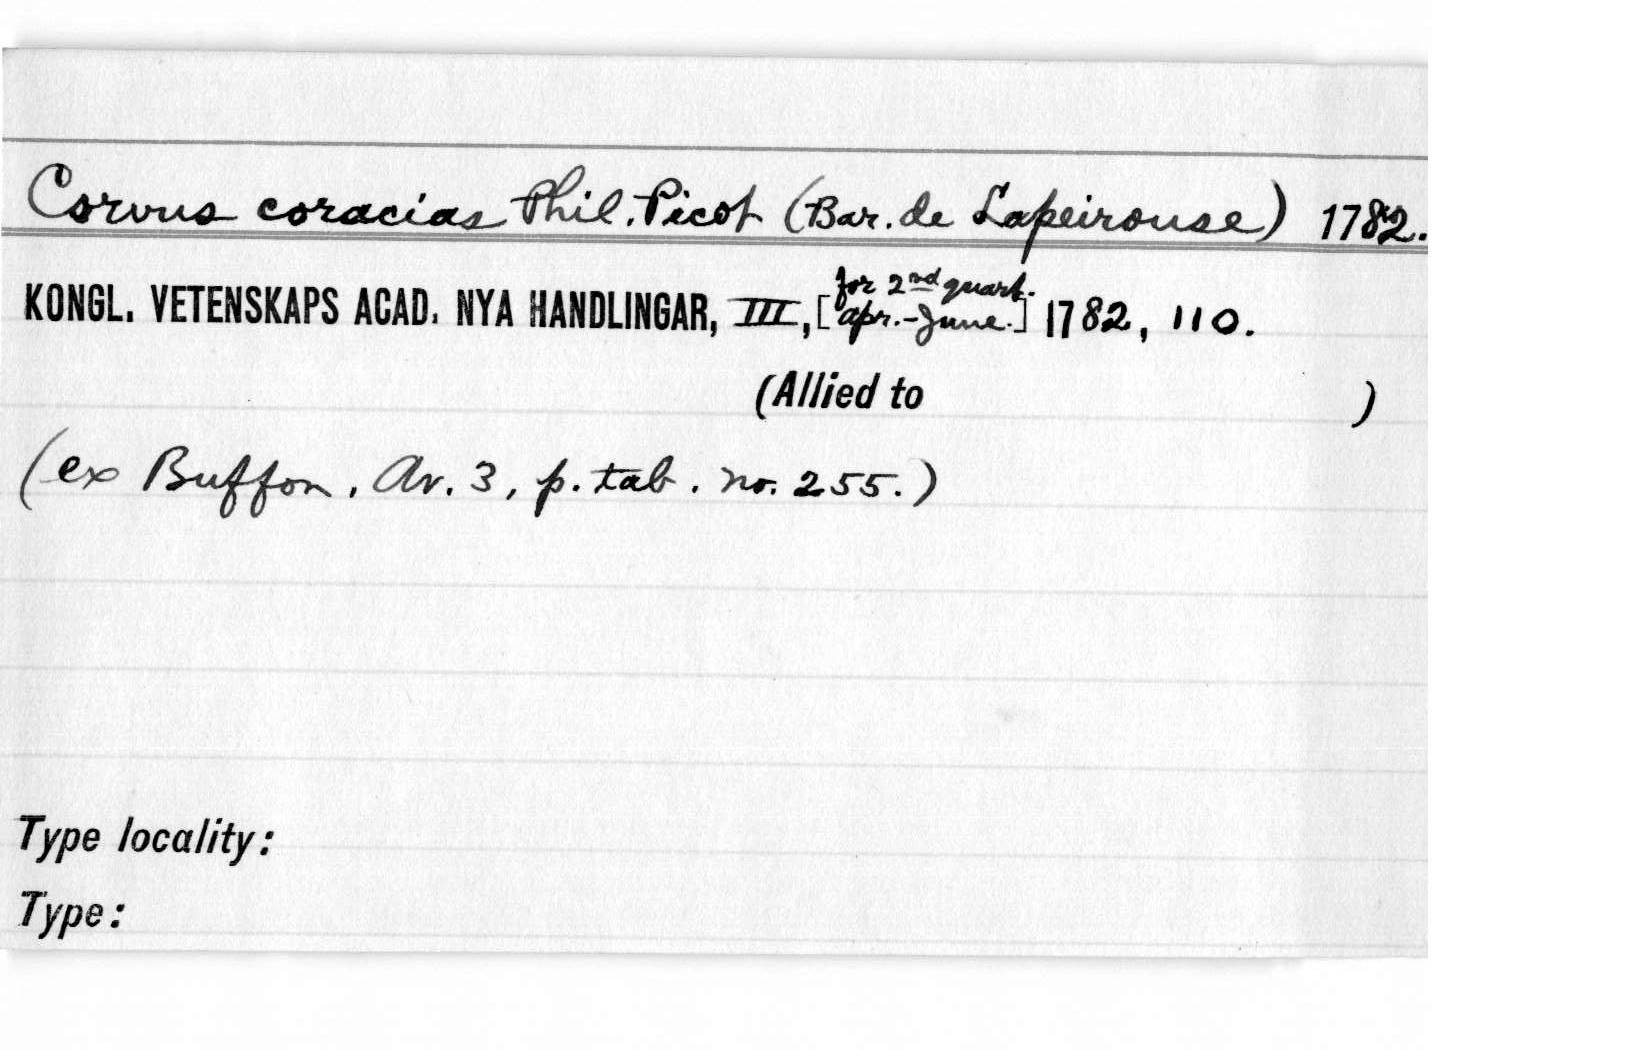 Corvus coracias Phil. Picot (Bar. de Lapeirouse) 1782.
for 2nd quart.
KONGL. VETENSKAPS ACAD. NYA HANDLINGAR, III, [apr.-June.] 1782, 110.
(Allied to )
(ex Buffon, Av. 3, p. tab. no. 255.)
Type locality:
Type: